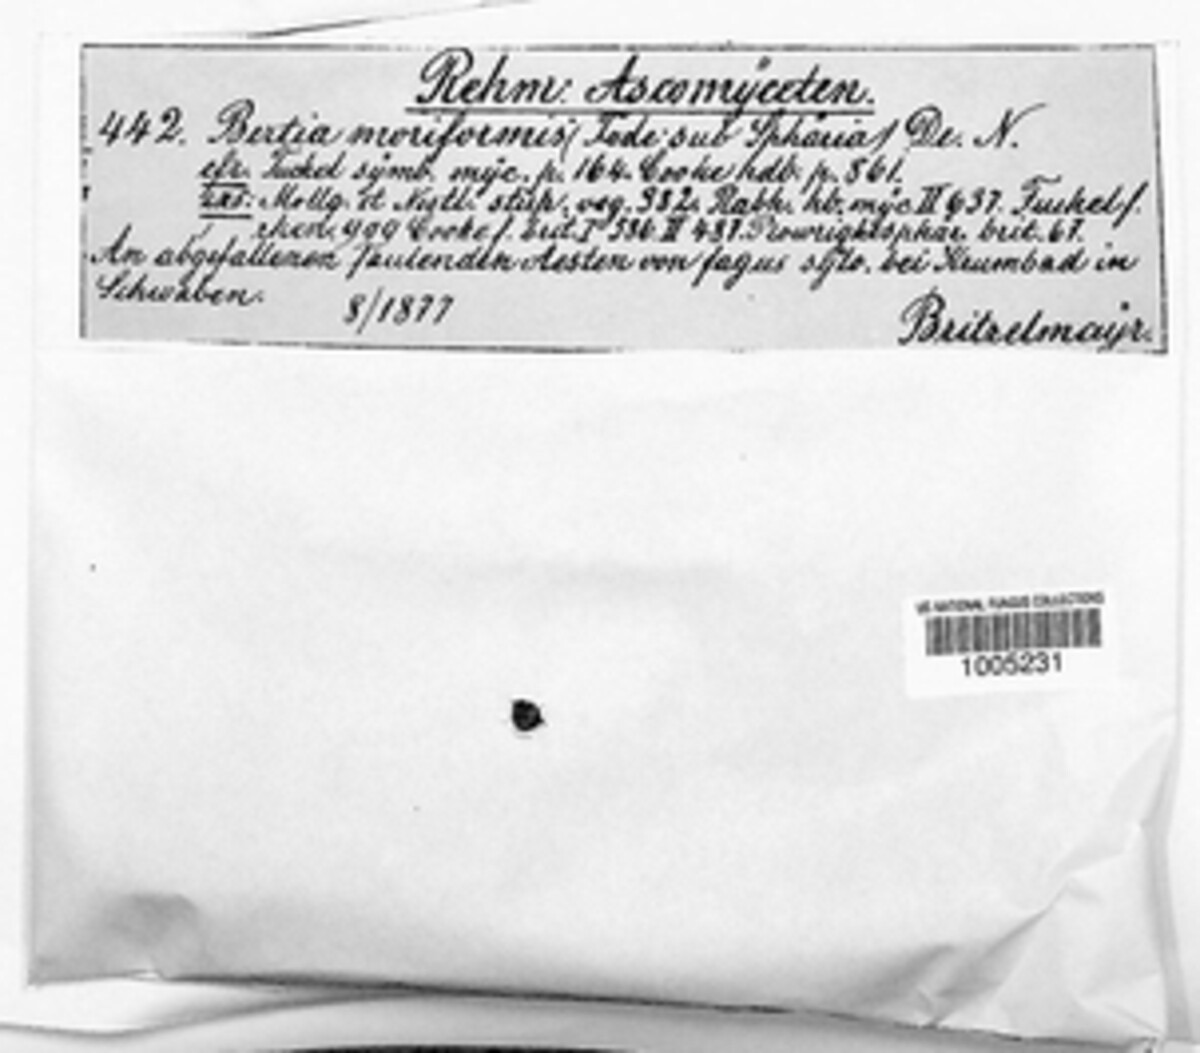 Rehm: Ascomÿceten.
442. Bertia moriformis (Tode sub Sphäria) De. N.
cfr. Fuckel sÿmb. mÿc. p. 164. Cooke hdb. p. 861.
exs: Mollg. et Nestl. stirp. veg. 382. Rabh. hb. mÿc. II 637. Fuckel f.
rhen. 999 Cooke f. brit. I 386. II 487. Plowright sphär. brit. 61.
An abgefallenen faulenden Aesten von fagus sylv. bei Krumbad in
Schwaben. 8/1877
Britzelmaÿr.
US NATIONAL FUNGUS COLLECTIONS
1005231